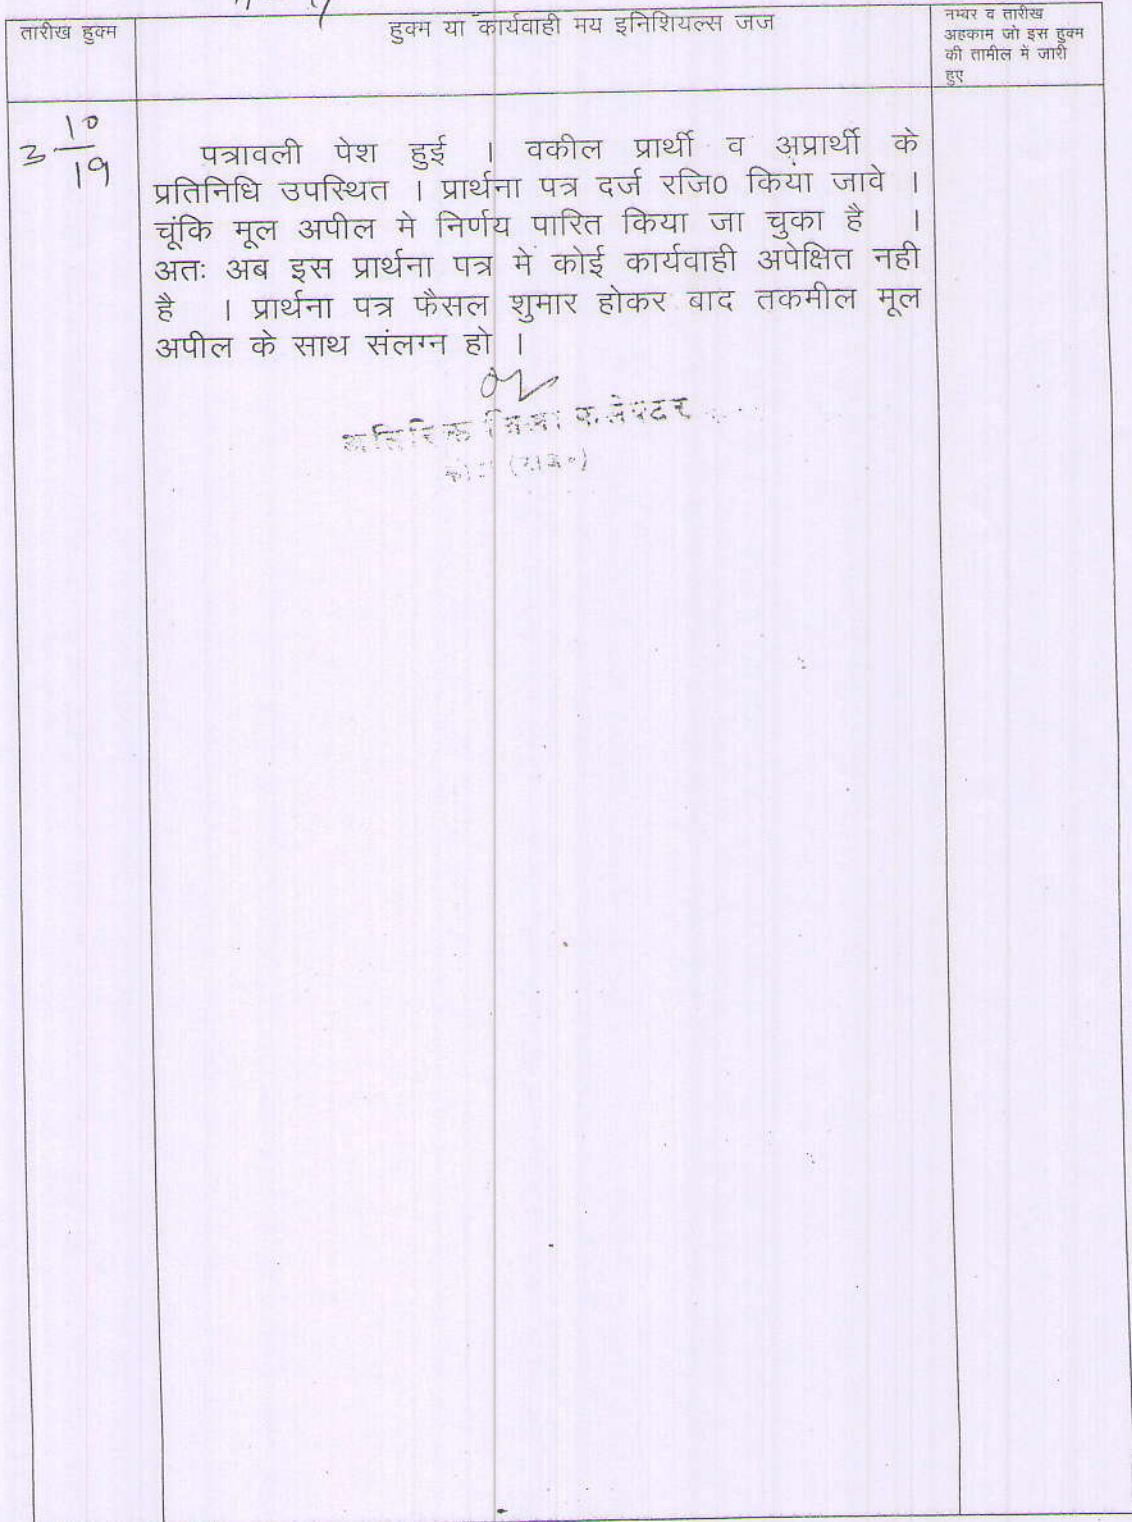 तारीख हुक्म
हुक्म या कार्यवाही मय इनिशियल्स जज
नम्बर व तारीख
अहकाम जो इस हुक्म
की तामील में जारी
हुए
3 10/19
पत्रावली पेश हुई । वकील प्रार्थी व अप्रार्थी के
प्रतिनिधि उपस्थित । प्रार्थना पत्र दर्ज रजि0 किया जावे ।
चूंकि मूल अपील मे निर्णय पारित किया जा चुका है ।
अतः अब इस प्रार्थना पत्र में कोई कार्यवाही अपेक्षित नही
है । प्रार्थना पत्र फैसल शुमार होकर बाद तकमील मूल
अपील के साथ संलग्न हो ।
अतिरिक्त जिला कलेक्टर
(राज०)